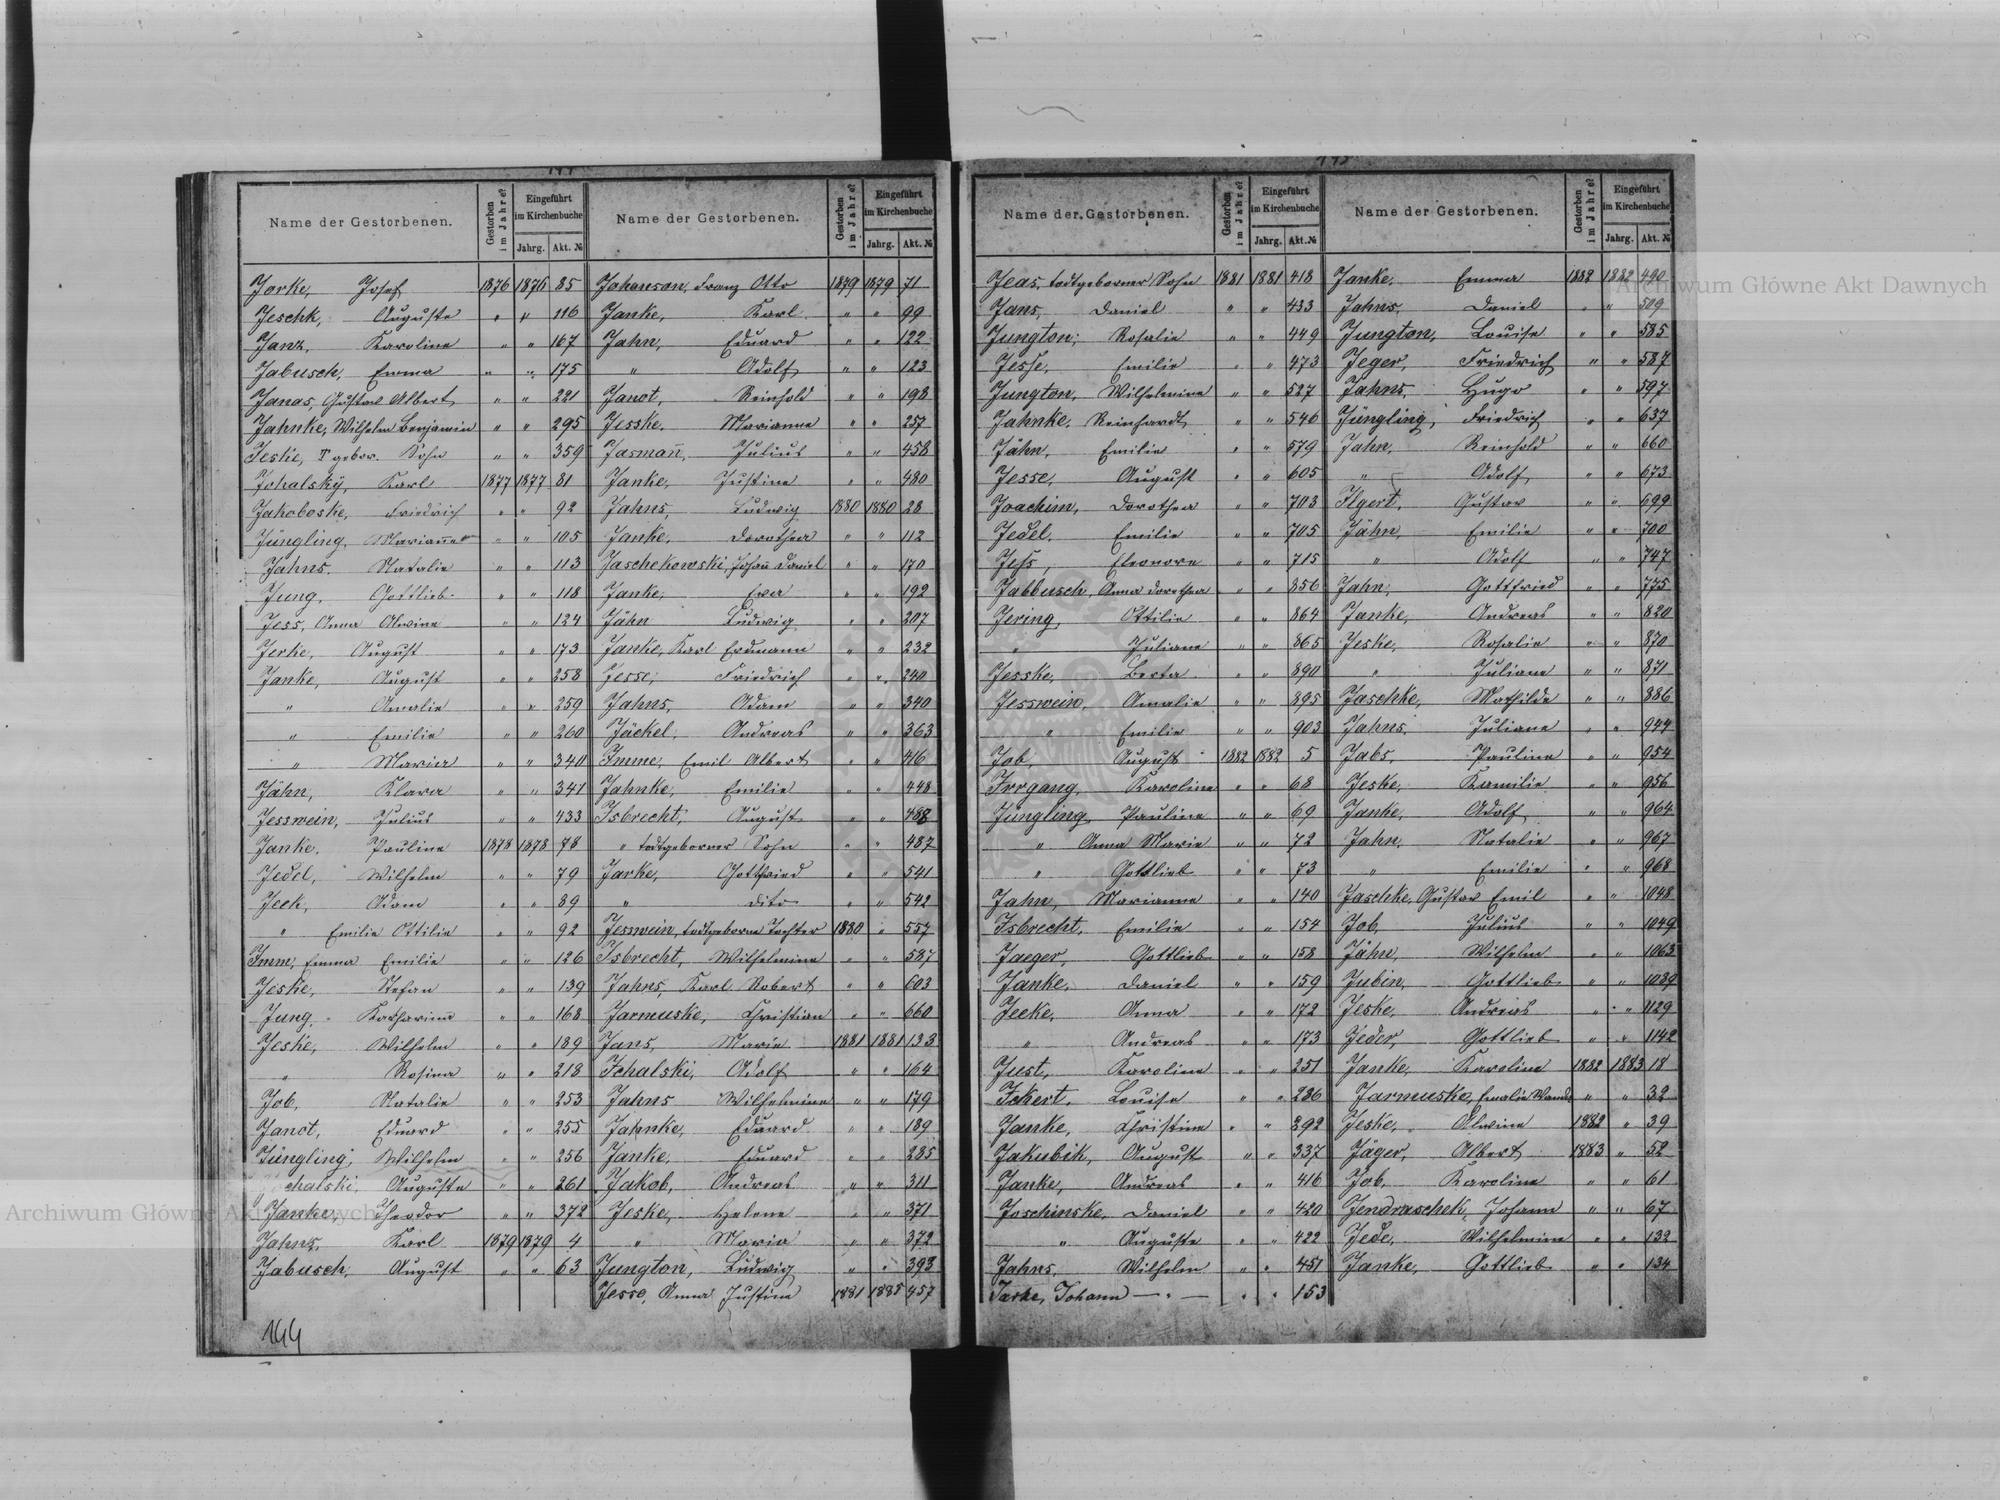 144
145
Name der Gestorbenen. Gestorben im Jahre? Eingeführt im Kirchenbuche Jahrg. Akt. №
Jorke, Josef 1876 1876 85
Jeschk, Auguste " " 116
Janz, Karoline " " 167
Jabusch, Emma " " 175
Janas, Gustav Albert " " 221
Jahnke, Wilhelm Benjamin " " 295
Jeske, T gebor. Sohn " " 359
Ichalsky, Karl 1877 1877 81
Jakoboske, Friedrich " " 92
Jüngling, Marianne " " 105
Jahns, Natalie " " 113
Jung, Gottlieb " " 118
Jess, Anna Alwine " " 124
Jerke, August " " 173
Janke, August " " 258
" Amalie " " 259
" Emilie " " 260
" Maria " " 340
Jähn, Klara " " 341
Jesswein, Julius " " 433
Janke, Pauline 1878 1878 78
Jedel, Wilhelm " " 79
Jeck, Adam " " 89
" Emilie Ottilie " " 92
Imm, Emma Emilie " " 126
Jeske, Stefan " " 139
Jung, Katharina " " 168
Jeske, Wilhelm " " 189
" Rosina " " 218
Job, Natalie " " 253
Janot, Eduard " " 255
Jüngling, Wilhelm " " 256
chalski, Auguste " " 261
Janke, Theodor " " 372
Jahns, Karl 1879 1879 4
Jabusch, August " " 63
144
Name der Gestorbenen. Gestorben im Jahre? Eingeführt im Kirchenbuche Jahrg. Akt. №
Johanson, Franz Otto 1879 1879 71
Janke, Karl " " 99
Jahn, Eduard " " 122
" Adolf " " 123
Janot, Reinhold " " 198
Jesske, Marianne " " 257
Jasmañ, Julius " " 458
Janke, Justine " " 480
Jahns, Ludwig 1880 1880 28
Janke, Dorothea " " 112
Jaschekowski, Johañ Daniel " " 170
Janke, Eva " " 192
Jähn Ludwig " " 207
Janke, Karl Erdmann " " 232
Jesse, Friedrich " " 240
Jahns, Adam " " 340
Jäckel, Andreas " " 363
Imme, Emil Albert " " 416
Jahnke, Emilie " " 448
Isbrecht, August " " 488
" todtgeborner Sohn " " 487
Jarke, Gottfried " " 541
" dito " " 542
Jesswein, todtgeborne Tochter 1880 " 557
Isbrecht, Wilhelmine " " 587
Jahns, Karl Robert " " 603
Jarmuske, Christian " " 660
Jans, Marie 1881 1881 133
Ichalski, Adolf " " 164
Jahns Wilhelmine " " 179
Jahnke, Eduard " " 189
Janke, Eduard " " 285
Jakob, Andreas " " 311
Jeske, Helene " " 371
" Maria " " 372
Jungton, Ludwig " " 393
Jesse, Anna Justine 1881 1885 457
Name der Gestorbenen. Gestorben im Jahre? Eingeführt im Kirchenbuche Jahrg. Akt. №
Jeas, todtgeborner Sohn 1881 1881 418
Jans, Daniel " " 433
Jungton, Rosalie " " 449
Jesse, Emilie " " 473
Jungton, Wilhelmine " " 527
Jahnke, Reinhardt " " 546
Jähn, Emilie " " 579
Jesse, August " " 605
Joachim, Dorothea " " 703
Jedel, Emilie " " 705
Jess, Eleonore " " 715
Jabbusch, Anna Dorothea " " 856
Jering, Ottilie " " 864
" Juliane " " 865
Jesske, Berta " " 890
Jesswein, Amalie " " 895
" Emilie " " 903
Job, August 1882 1882 5
Irrgang, Karoline " " 68
Jüngling, Pauline " " 69
" Anna Marie " " 72
" Gottlieb " " 73
Jahn, Marianna " " 140
Isbrecht, Emilie " " 154
Jaeger, Gottlieb " " 158
Janke, Daniel " " 159
Jecke, Anna " " 172
" Andreas " " 173
Just, Karoline " " 251
Ickert, Louise " " 286
Janke, Christine " " 292
Jakubik, August " " 337
Janke, Andreas " " 416
Joschinske, Daniel " " 420
" Auguste " " 422
Jahns, Wilhelm " " 451
Jarke, Johann — " — " " 153
Name der Gestorbenen. Gestorben im Jahre? Eingeführt im Kirchenbuche Jahrg. Akt. №
Janke, Emma 1882 1882 490
Jahns, Daniel " " 509
Jungton, Louise " " 585
Jeger, Friedrich " " 587
Jahns, Hugo " " 597
Jüngling, Friedrich " " 637
Jahn, Reinhold " " 660
" Adolf " " 673
Ilgert, Gustav " " 699
Jähn, Emilie " " 700
" Adolf " " 747
Jahn, Gottfried " " 775
Janke, Andreas " " 820
Jeske, Rosalie " " 870
" Juliane " " 871
Jaschke, Mathilde " " 886
Jahns, Juliane " " 944
Jabs, Pauline " " 954
Jeske, Kamilie " " 956
Janke, Adolf " " 964
Jahn, Natalie " " 967
" Emilie " " 968
Jaschke, Gustav Emil " " 1048
Job, Julius " " 1049
Jähn, Wilhelm " " 1063
Jubin, Gottlieb " " 1089
Jeske, Andreas " " 1129
Jeder, Gottlieb " " 1142
Janke, Karoline 1882 1883 18
Jarmuske, Emalie Wanda " " 32
Jeske, Alwine 1882 " 39
Jäger, Albert 1883 " 52
Job, Karoline " " 61
Jendraschek, Johann " " 67
Jede, Wilhelmine " " 132
Janke, Gottlieb " " 134
Archiwum Główne Akt Dawnych
Archiwum Główne Akt Dawnych